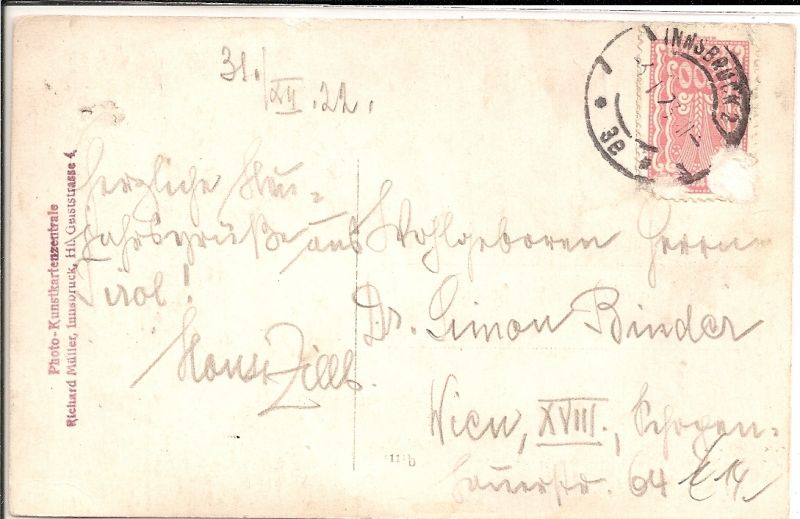 31./XII.22.
Herzliche Neu-
jahrsgrüße aus
Tirol!
Hans
Wohlgeboren Herrn
Dr. Simon Binder
Wien, XVIII., Schopen-
hauerstr. 64
Photo-Kunstkartenzentrale
Richard Müller, Innsbruck, Hl. Geiststrasse 4.
INNSBRUCK 2
* 3e *
111b